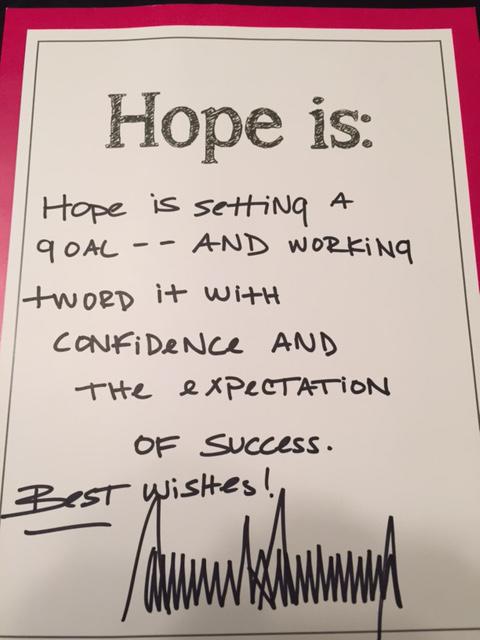 Hope is:
Hope is setting A
gOAL -- AND WORKiNg
tWORD it WitH
CONFiDeNCe AND
tHe eXPeCtAtiON
OF SUCCeSS.
BeSt WiSHeS!